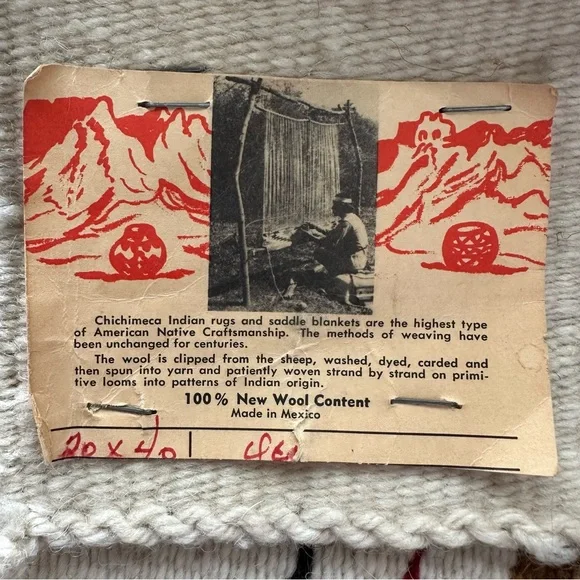 Chichimeca Indian rugs and saddle blankets are the highest type
of American Native Craftsmanship. The methods of weaving have
been unchanged for centuries.
The wool is clipped from the sheep, washed, dyed, carded and
then spun into yarn and patiently woven strand by strand on primi-
tive looms into patterns of Indian origin.
100% New Wool Content
Made in Mexico
20 x 40